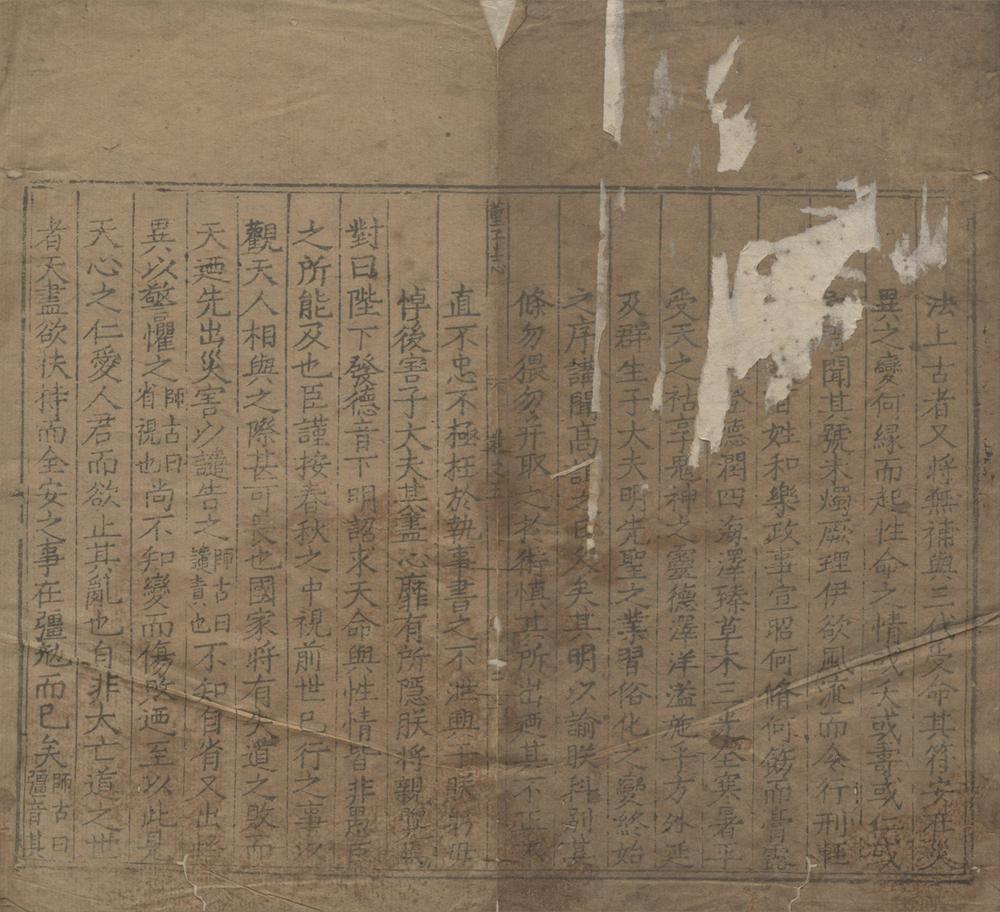 法上古者又將無補與三代受命其符安在災
異之變何緣而起性命之情或夭或壽或仁或
聞其號未燭厥理伊欲風流而令行刑輕
姓和樂政事宣昭何脩何飭而膏露
德潤四海澤臻草木三光全寒暑平
受天之祜享鬼神之靈德澤洋溢施乎方外延
及群生子大夫明先聖之業習俗化之變終始
之序講聞高誼之日久矣其明以諭朕科別其
條勿猥勿并取之於術慎其所出廼其不正
直不忠不極枉於執事書之不泄興于朕躬毋
悼後害子大夫其盡心靡有所隱朕將親覽焉
對曰陛下發德音下明詔求天命與性情皆非愚臣
之所能及也臣謹按春秋之中視前世已行之事以
觀天人相與之際甚可畏也國家將有失道之敗而
天廼先出災害以譴告之師古曰譴責也不知自省又出怪
異以警懼之師古曰省視也尚不知變而傷敗廼至以此見
天心之仁愛人君而欲止其亂也自非大亡道之世
者天盡欲扶持而全安之事在彊勉而已矣師古曰彊音其